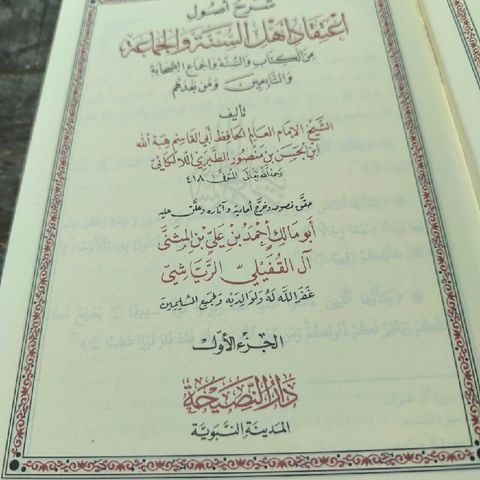 شرح أصول
اعتقاد أهل السنة والجماعة
من الكتاب والسنة وإجماع الصحابة
والتابعين ومن بعدهم
تأليف
الشيخ الإمام العالم الحافظ أبي القاسم هبة الله
ابن الحسن بن منصور الطبري اللالكائي
رحمه الله تعالى المتوفى ٤١٨
حقق نصوصه وخرج أحاديثه وآثاره وعلق عليه
أبو مالك أحمد بن علي بن المثنى
آل القفيلي الرياشي
غفر الله له ولوالديه ولجميع المسلمين
الجزء الأول
دار النصيحة
المدينة النبوية